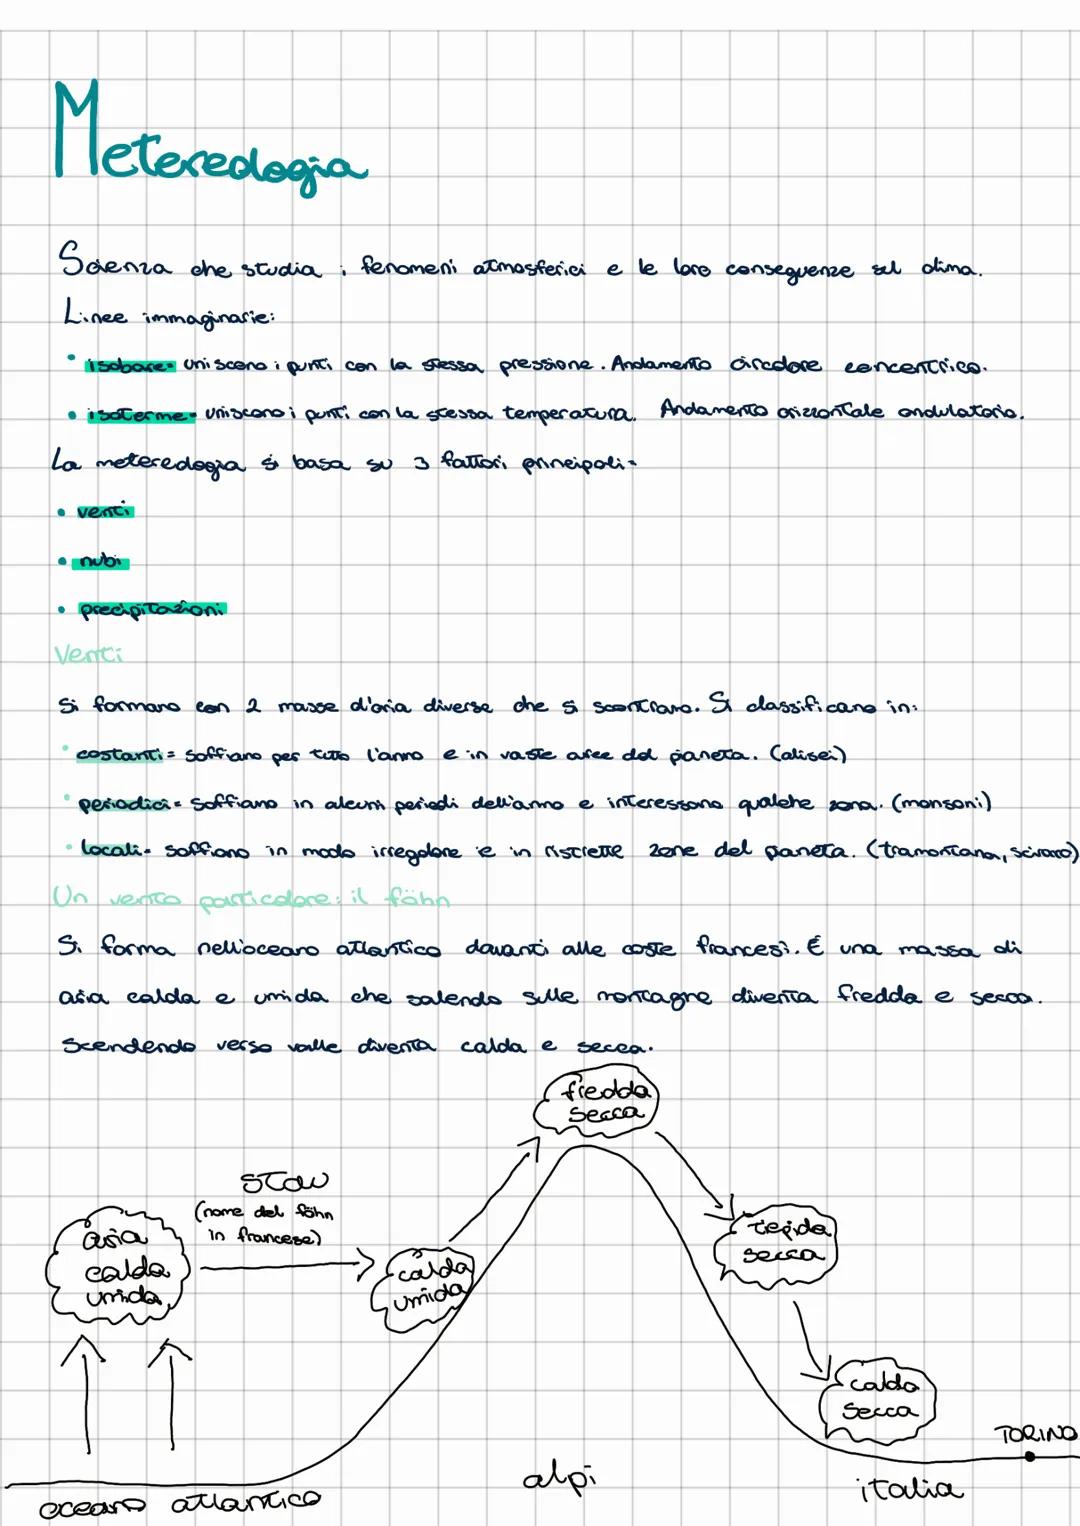 Metereologia
Scienza che studia i fenomeni atmosferici e le loro conseguenze sul clima.
Linee immaginarie:
• isobare= uniscono i punti con la stessa pressione. Andamento circolare concentrico.
• isoterme= uniscono i punti con la stessa temperatura. Andamento orizzontale ondulatorio.
La metereologia si basa su 3 fattori principali=
• venti
• nubi
• precipitazioni
Venti
Si formano con 2 masse d'aria diverse che si scontrano. Si classificano in:
• costanti= soffiano per tutto l'anno e in vaste aree del pianeta. (alisei)
• periodici= soffiano in alcuni periodi dell'anno e interessano qualche zona. (monsoni)
• locali= soffiano in modo irregolare e in ristrette zone del pianeta. (tramontana, scirocco)
Un vento particolare: il föhn
Si forma nell'oceano atlantico davanti alle coste francesi. É una massa di
aria calda e umida che salendo sulle montagne diventa fredda e secca.
Scendendo verso valle diventa calda e secca.
fredda
secca
stau
(nome del föhn
in francese)
aria
calda
umida
calda
umida
tiepida
secca
calda
secca
TORINO
alpi
italia
oceano atlantico